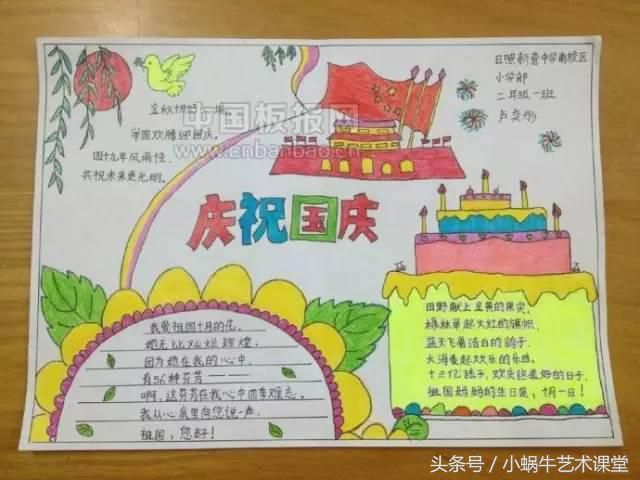 日照新营中学南校区
小学部
二年级一班
卢奕彤
金秋
举国欢腾迎国庆。
四十九年风雨径,
共祝未来更光明。
中国板报网
www.cnbanbao.cn
庆祝国庆
我爱祖国十月的花。
她无比灿烂辉煌,
因为她在我的心中,
有56种芬芳——
啊,这芬芳在我心中而难忘。
我从心底里向您说一声,
祖国,您好!
田野献上金黄的果实,
枫林举起火红的旗帜,
蓝天飞着洁白的鸽子,
大海奏起欢乐的乐曲。
十三亿孩子,欢庆这美好的日子,
祖国妈妈的生日是,十月一日!
头条号/小蜗牛艺术课堂